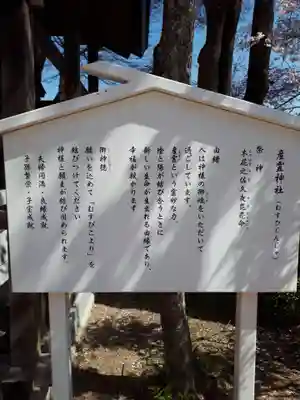 産霊神社（むすびじんじゃ）
祭神
木花之佐久夜毘売命
由緒
人は神様の御魂をいただいて
過ごしています。
産霊という霊妙な力、
陰と陽が結び合うときに
新しい生命が生まれる由縁であり、
幸福が授かります
御神徳
願いを込めて「むすびこより」を
結びつけてください
神様と願主が結び固められます。
夫婦円満・良縁成就
子孫繁栄・子宝成就